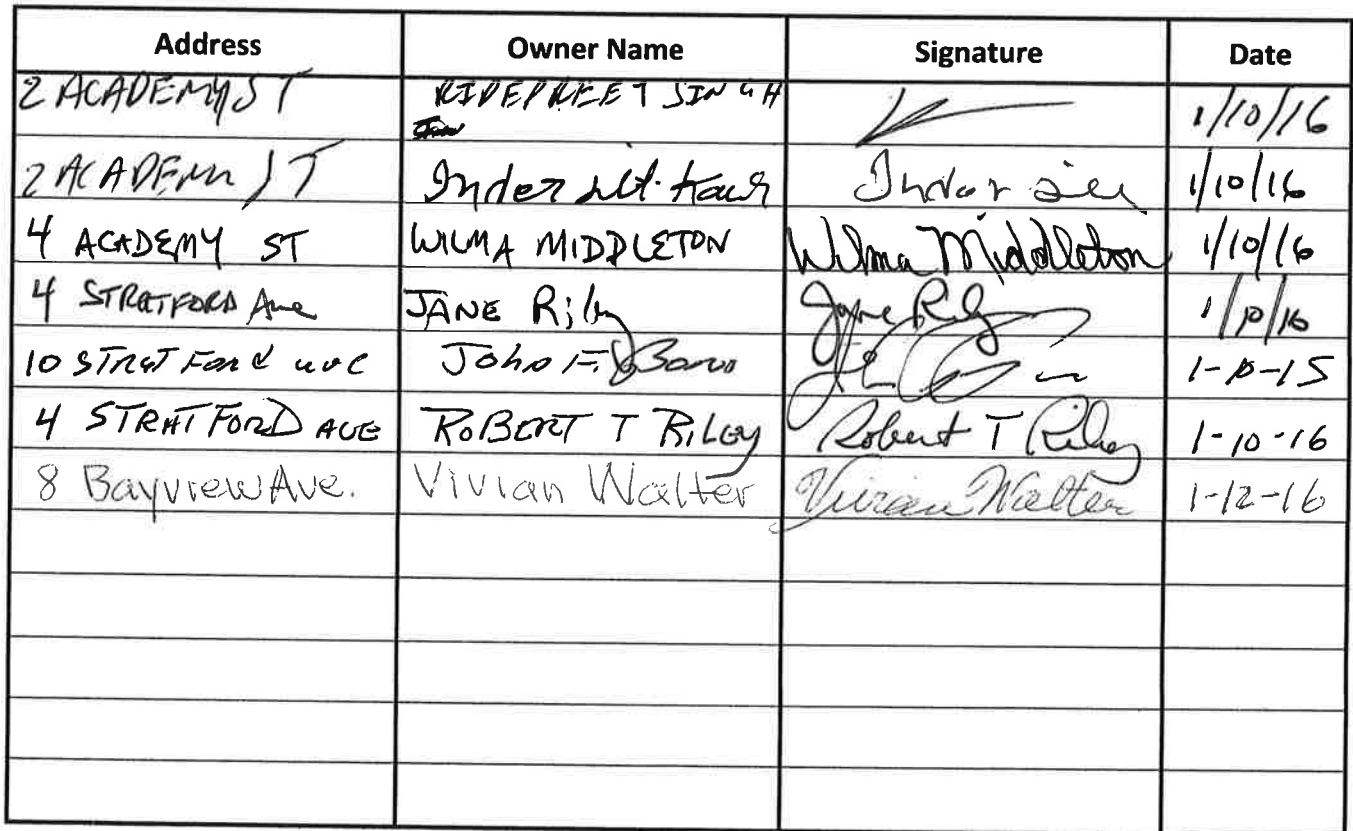 Address Owner Name Signature Date
2 ACADEMY ST SINGH 1/10/16
2 ACADEMY ST Inder Kaur Inder 1/10/16
4 ACADEMY ST WILMA MIDDLETON Wilma Middleton 1/10/16
4 STRATFORD Ave JANE Riley Jane Riley 1/10/16
10 STRATFORD ave John F. 1-10-15
4 STRATFORD AVE ROBERT T RILEY Robert T Riley 1-10-16
8 Bayview Ave. Vivian Walter Vivian Walter 1-12-16